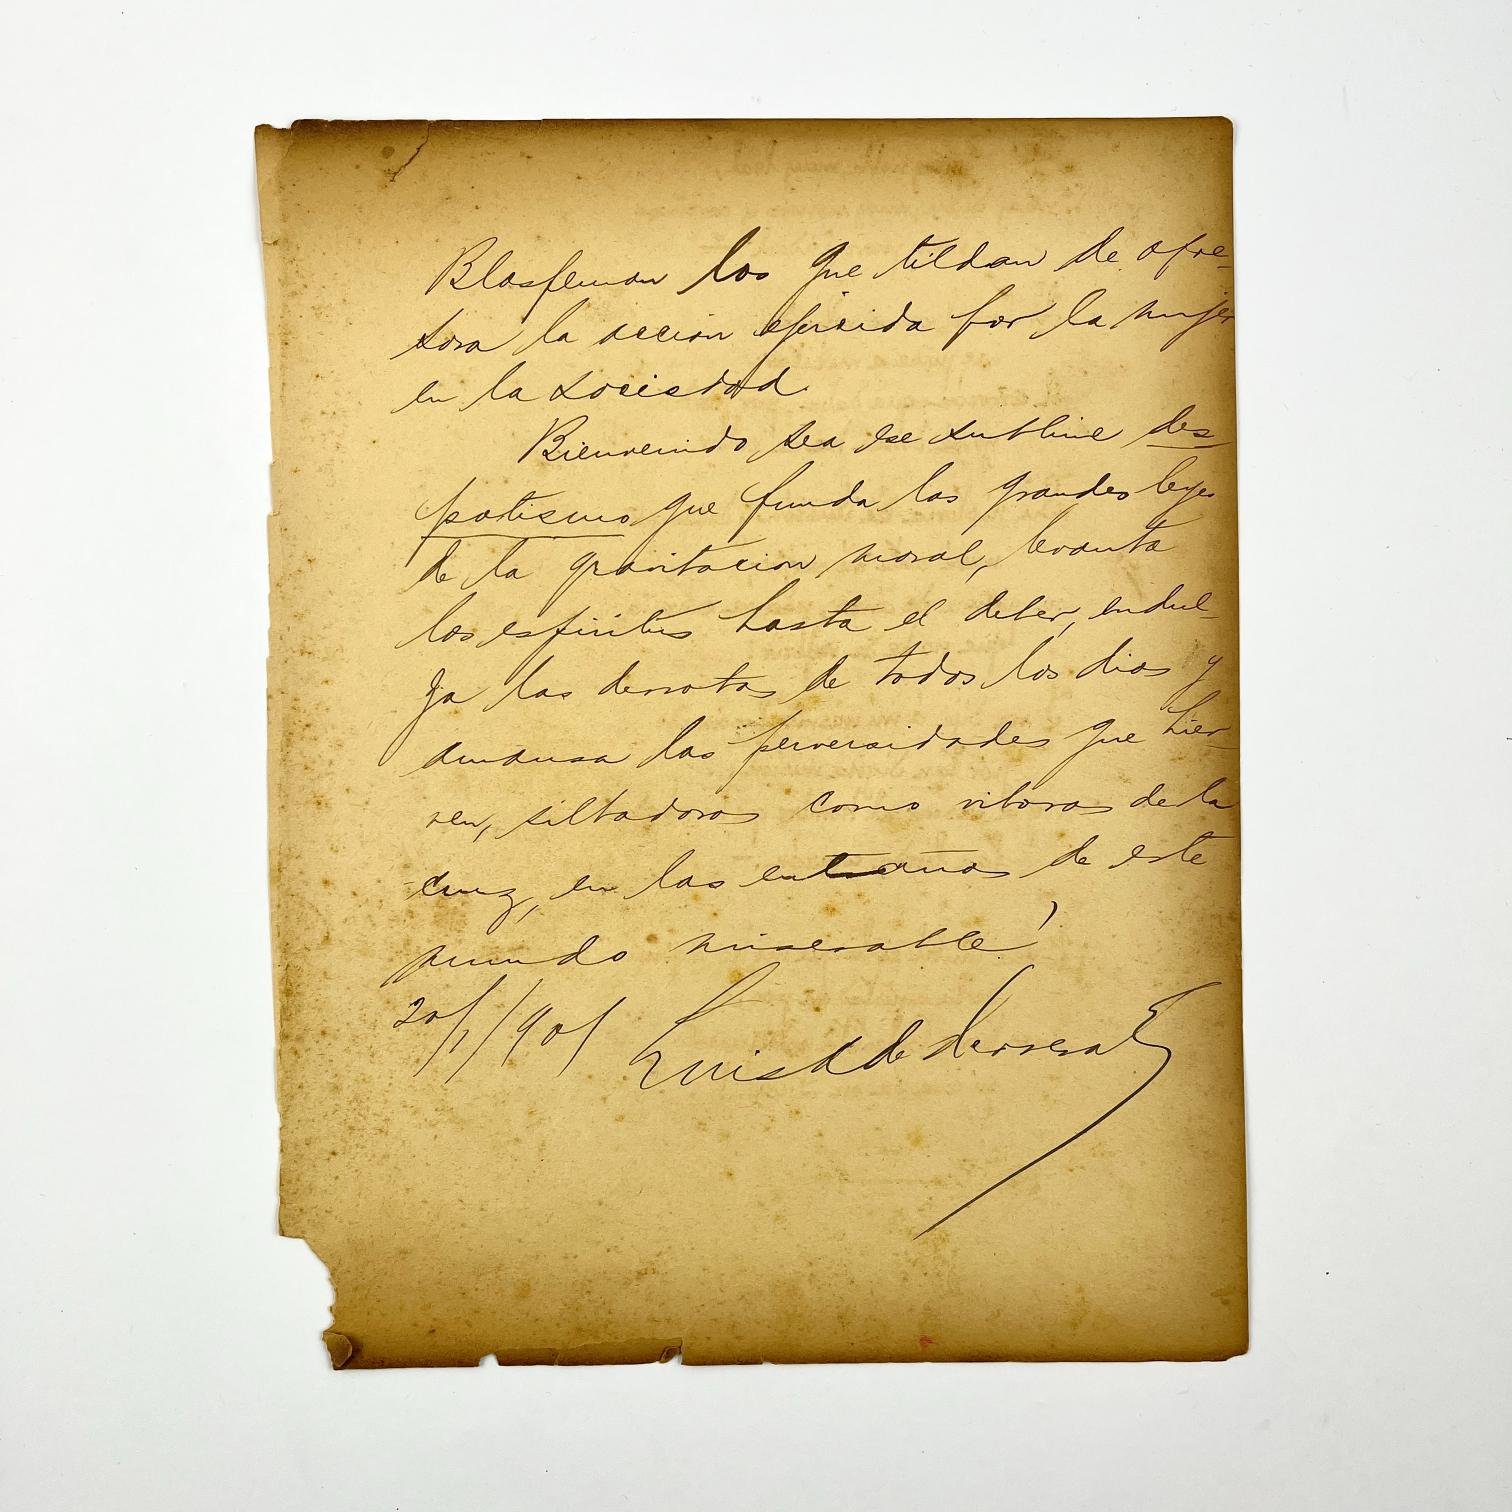 Blasfeman los que tildan de opre-
sora la accion ejercida por la mujer
en la sociedad.
Bienvenido sea ese sublime des
potismo que funda las grandes leyes
de la gravitacion moral, levanta
los espiritus hasta el deber, endul-
za las derrotas de todos los dias y
amansa las perversidades que hier-
ven, silbadoras como viboras de la
cruz, en las entrañas de este
mundo miserable!
20/1/901 Luis A. de Herrera